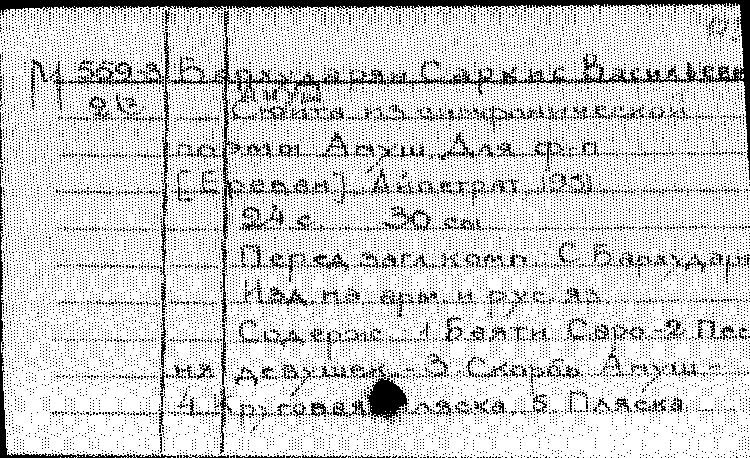 М 559-3 Бархударян Саркис Васильев
912
Сюита из симфонической
поэмы Ануш. Для ф-п
[Ереван], Айпетрат, 1951
24 с. 30 см
Перед загл. комп. С. Бархудар
Изд. на арм. и рус. яз.
Содерж.: 1 Баяти Саро.-2 Пес
ня девушек.-3 Скорбь Ануш.-
4 Круговая пляска. 5 Пляска